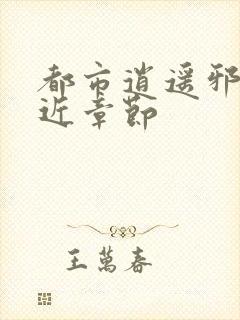 都市逍遥邪
近章節
王萬春